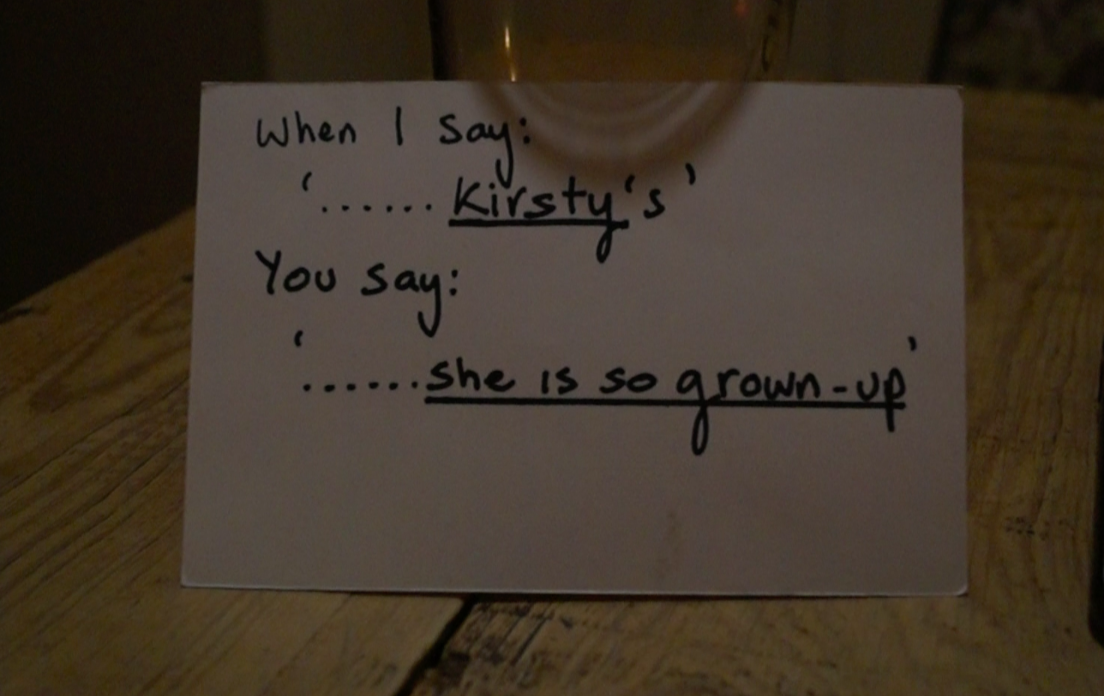 When I say:
'......Kirsty's'
You say:
'......she is so grown-up'